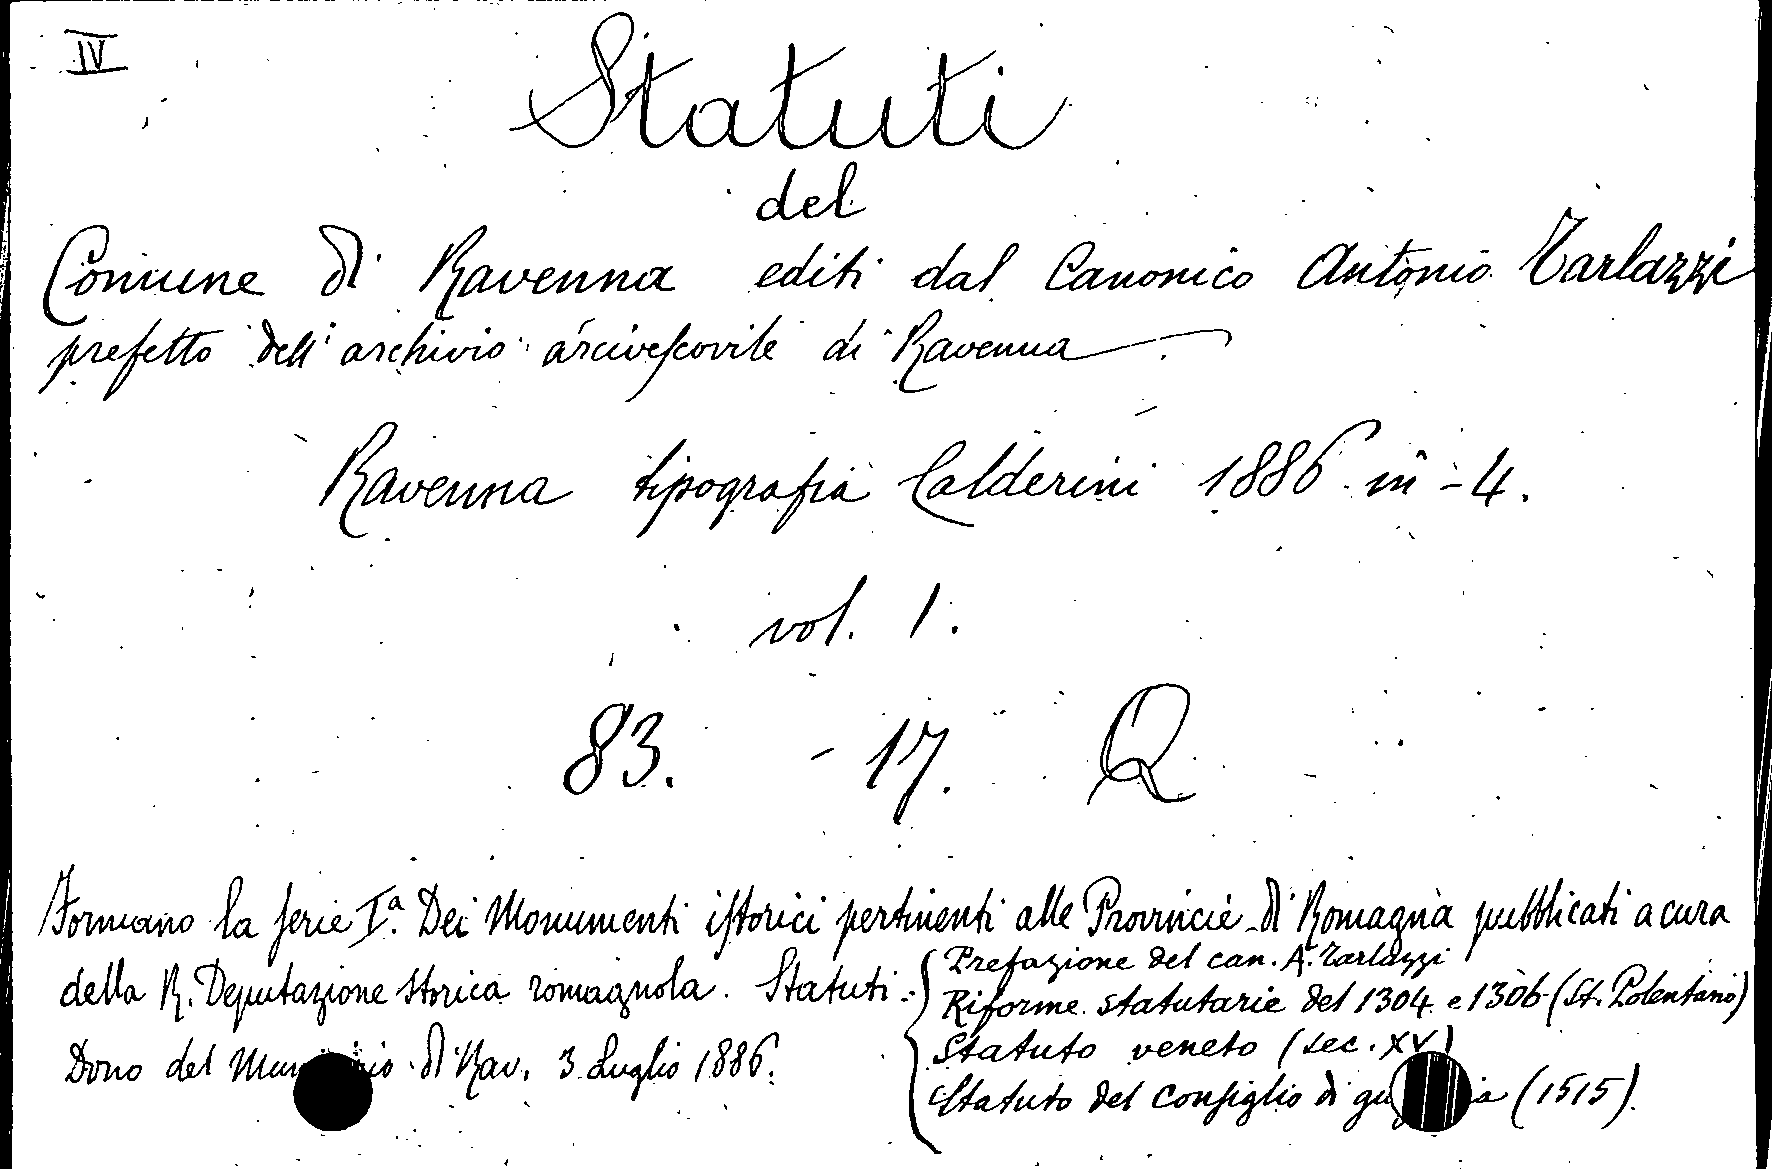 IV
Statuti
del
Comune di Ravenna editi dal Canonico Antonio Tarlazzi
prefetto dell'archivio arcivescovile di Ravenna
Ravenna tipografia Calderini 1886 in-4.
vol. 1.
83. - 17. Q
Formano la serie Iª. Dei Monumenti istorici pertinenti alle Provincie di Romagna pubblicati a cura
della R. Deputazione storica romagnola. Statuti:
Prefazione del can. A. Tarlazzi
Riforme statutarie del 1304 e 1306 (St. Polentano)
Statuto veneto (sec. XV)
Statuto del Consiglio di (1515).
Dono del di Rav. 3 Luglio 1886.